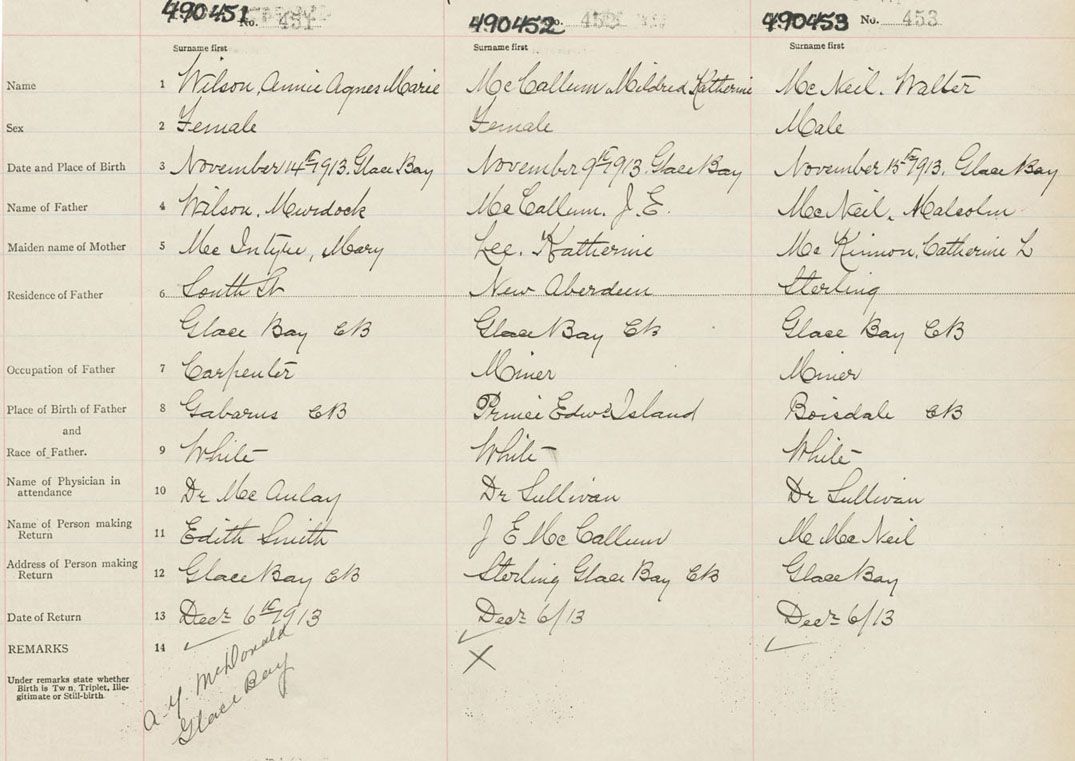 490451 No. 451 490452 No. 452 490453 No. 453
Surname first Surname first Surname first
Name 1 Wilson, Annie Agnes Marie McCallum, Mildred Katherine McNeil, Walter
Sex 2 Female Female Male
Date and Place of Birth 3 November 14th 1913. Glace Bay November 9th 1913. Glace Bay November 15th 1913. Glace Bay
Name of Father 4 Wilson, Murdock McCallum, J. E. McNeil, Malcolm
Maiden name of Mother 5 McIntyre, Mary Lee, Katherine McKinnon, Catherine L
Residence of Father 6 South St New Aberdeen Sterling
Glace Bay CB Glace Bay CB Glace Bay CB
Occupation of Father 7 Carpenter Miner Miner
Place of Birth of Father 8 Gabarus CB Prince Edwd Island Boisdale CB
and
Race of Father. 9 White White White
Name of Physician in
attendance 10 Dr McAulay Dr Sullivan Dr Sullivan
Name of Person making
Return 11 Edith Smith J E McCallum M McNeil
Address of Person making
Return 12 Glace Bay CB Sterling Glace Bay CB Glace Bay
Date of Return 13 Decr 6th 1913 Decr 6/13 Decr 6/13
REMARKS 14 ✓ ✓ ✓
X
Under remarks state whether
Birth is Twin, Triplet, Ille-
gitimate or Still-birth.
A. Y. McDonald
Glace Bay